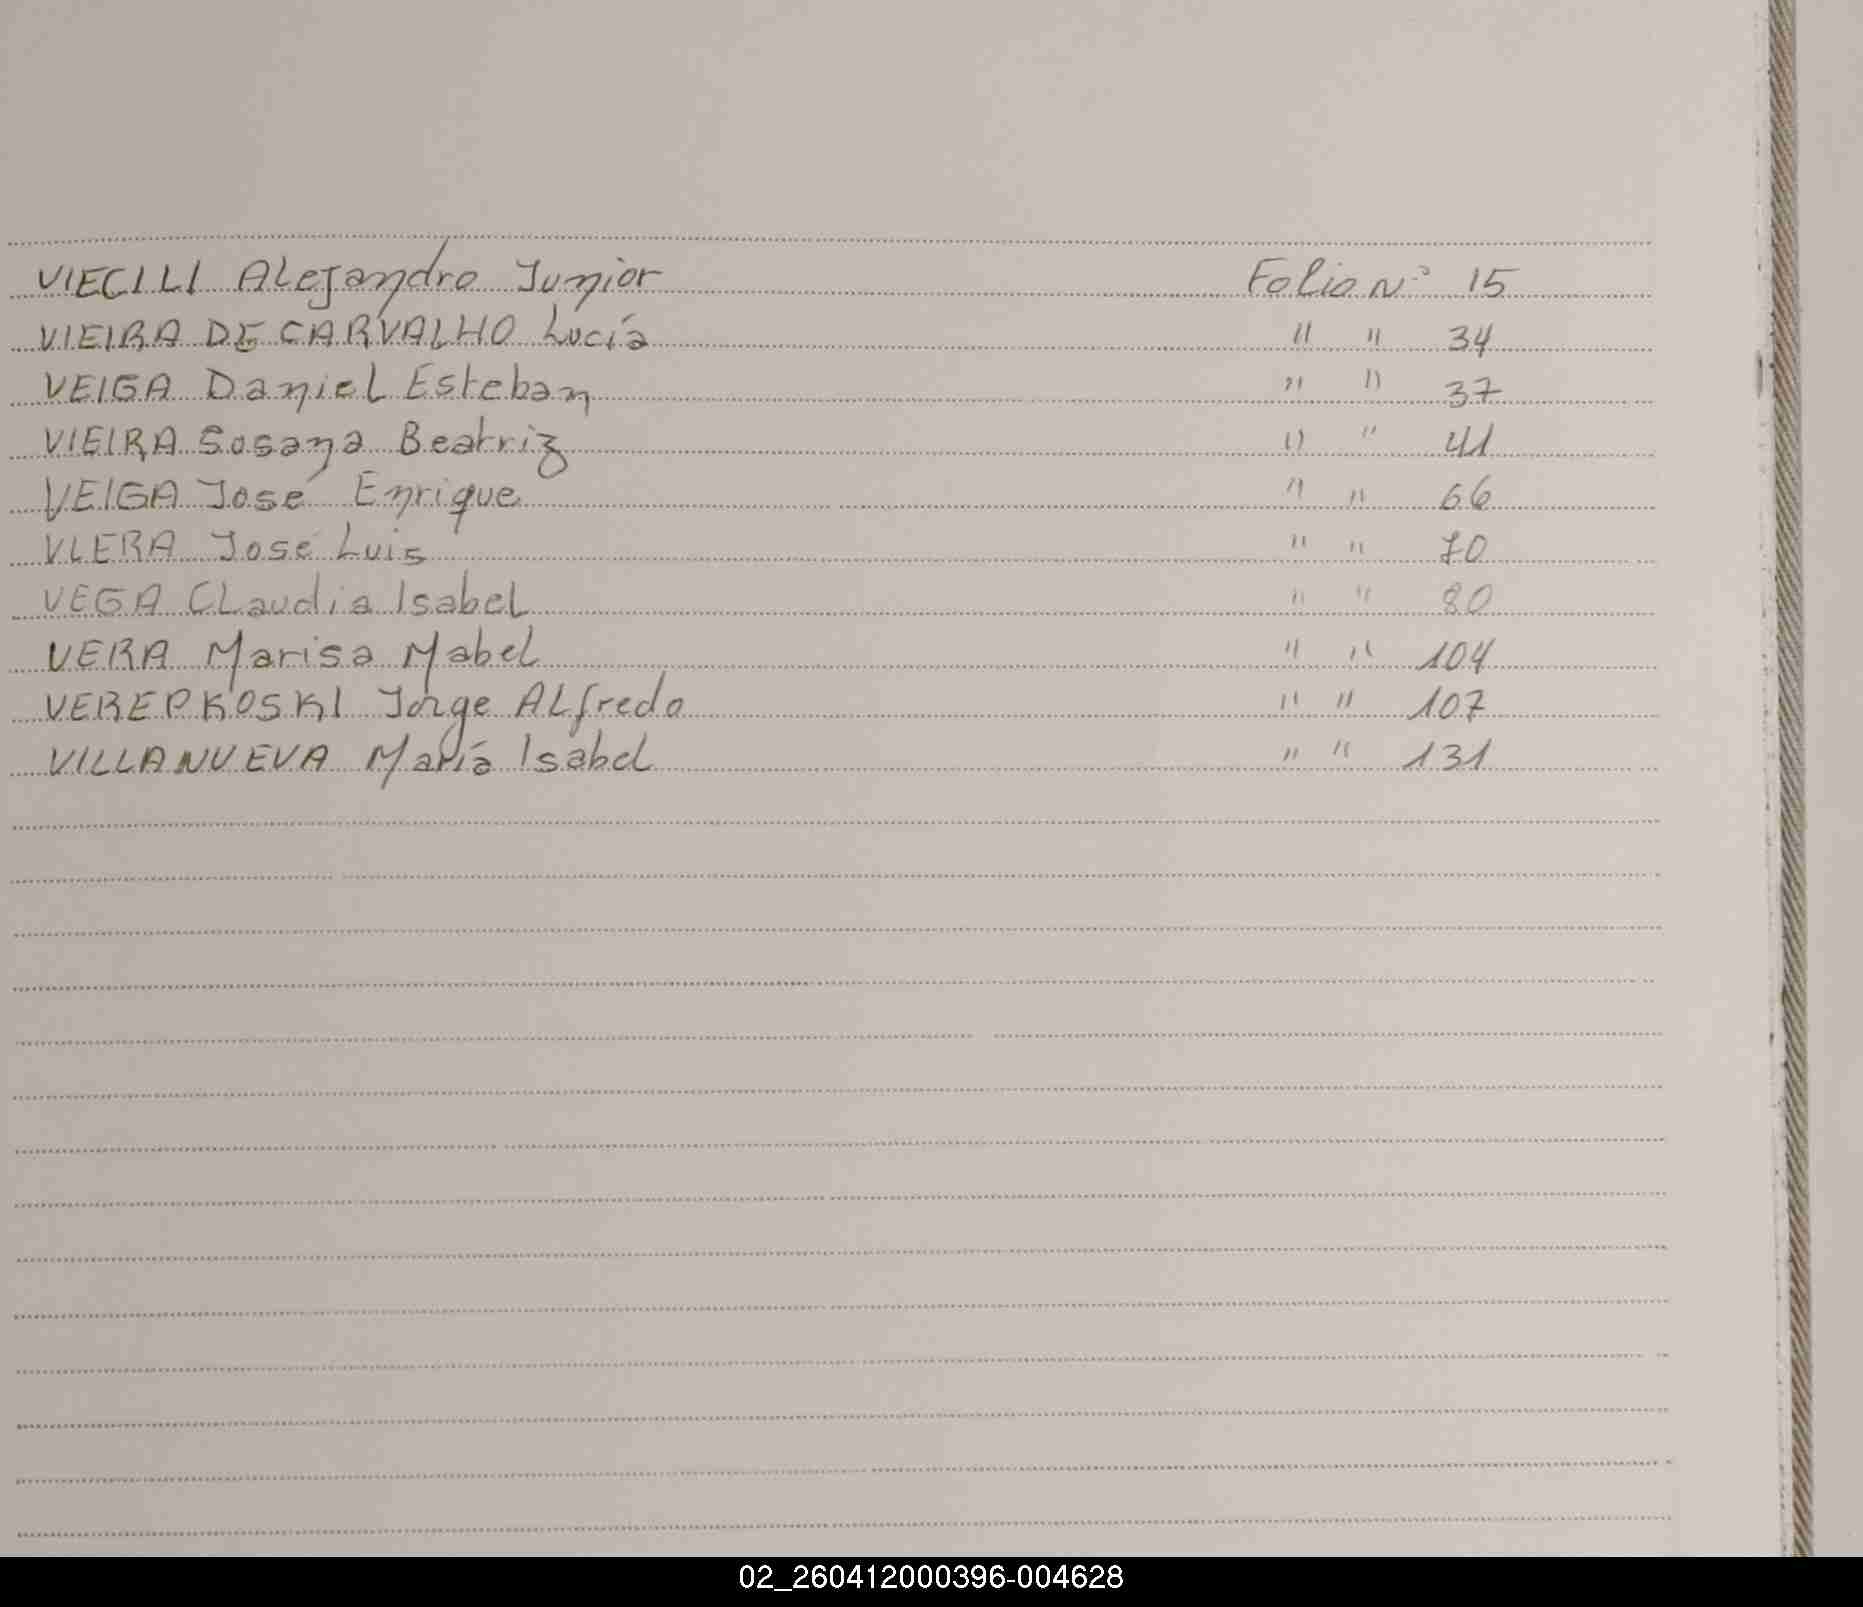 VIECILI Alejandro Junior Folio Nº 15
VIEIRA DE CARVALHO Lucía " " 34
VEIGA Daniel Esteban " " 37
VIEIRA Susana Beatriz " " 41
VEIGA José Enrique " " 66
VLERA José Luis " " 70
VEGA Claudia Isabel " " 80
VERA Marisa Mabel " " 104
VEREPKOSKI Jorge Alfredo " " 107
VILLANUEVA María Isabel " " 131
02_260412000396-004628